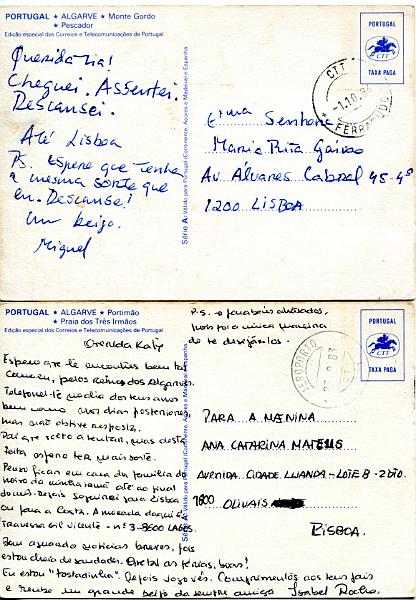 PORTUGAL ★ ALGARVE ★ Monte Gordo
★ Pescador
Edição especial dos Correios e Telecomunicações de Portugal
Querida tia!
Cheguei. Assentei.
Descansei.
Até Lisboa
Ps. Espero que tenha
a mesma sorte que
eu. Descanse!
Um beijo.
Miguel
Série A: Válido para Portugal (Continente, Açores e Madeira) e Espanha
PORTUGAL
CTT
TAXA PAGA
CTT
-1.10.84
FERRAGUDO
Exma Senhora
Maria Rita
Av Álvares Cabral 45-4º
1200 LISBOA
PORTUGAL ★ ALGARVE ★ Portimão
★ Praia dos Três Irmãos
Edição especial dos Correios e Telecomunicações de Portugal
P.S. - parabéns atrasados,
pois foi a única maneira
de te desejá-los.
PORTUGAL
CTT
TAXA PAGA
AEROPORTO
CTT
Querida Katy
Espero que te encontres bem tal
como eu, pelos Reinos dos Algarves.
Telefonei-te no dia dos teus anos
bem como nos dias posteriores,
mas não obtive resposta.
Daí que volto a tentar, mas desta
feita espero ter mais sorte.
Penso ficar em casa da família do
noivo da minha irmã até ao final
Depois seguirei para Lisboa
ou para a Costa. A morada daqui é:
Travessa Gil Vicente - nº 3 - 8600 LAGOS.
Bem aguardo notícias breves, pois
estou cheia de saudades. Que tal as férias, boas?
Eu estou "tostadinha". Depois logo vês. Cumprimentos aos teus pais
e recebe um grande beijo da sempre amiga Isabel Rocha
Série A: Válido para Portugal (Continente, Açores e Madeira) e Espanha
PARA A MENINA
ANA CATARINA MATEUS
AVENIDA CIDADE LUANDA - LOTE B - 2º DTO.
1800 OLIVAIS
LISBOA.